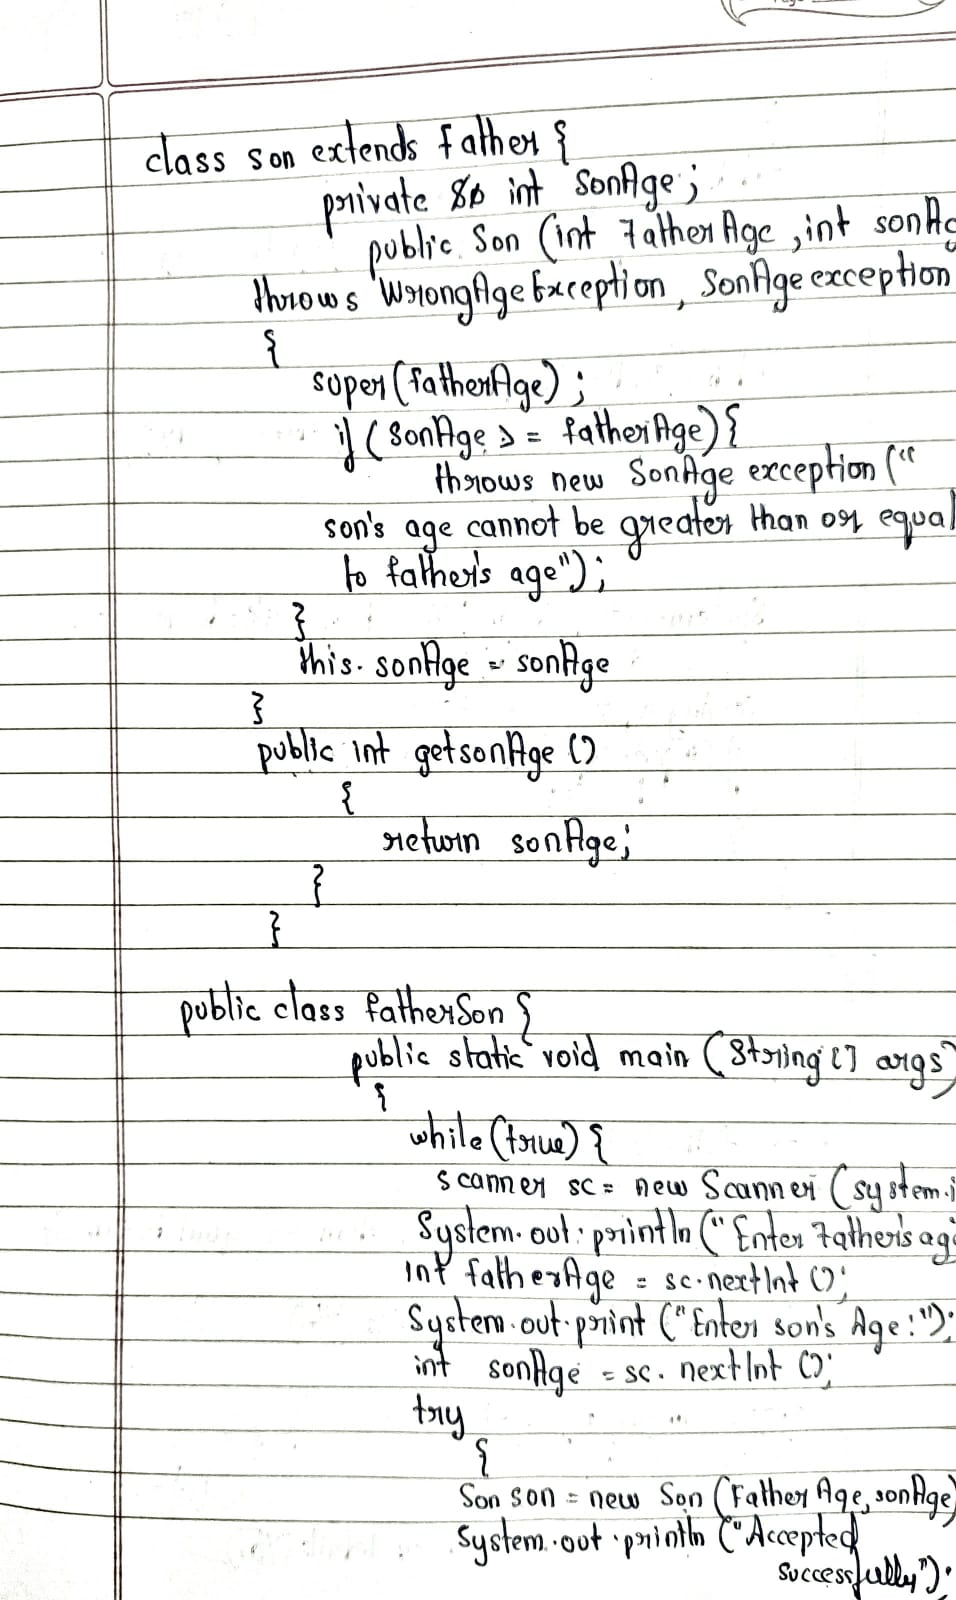 class son extends father {
private int sonAge;
public Son (int FatherAge, int sonAg
throws WrongAgeException, SonAge exception
{
super(fatherAge);
if (SonAge >= fatherAge){
throws new SonAge exception ("
son's age cannot be greater than or equal
to father's age");
}
this. sonAge = sonAge
}
public int getsonAge ()
{
return sonAge;
}
}
public class fatherSon {
public static void main (String [] args)
{
while (true) {
scanner sc = new Scanner (system.i
System. out. println ("Enter Father's ag
int fatherAge = sc.nextInt ();
System.out.print ("Enter son's Age:");
int sonAge = sc. nextInt ();
try
{
Son son = new Son (FatherAge, sonAge)
System.out.println ("Accepted
successfully");